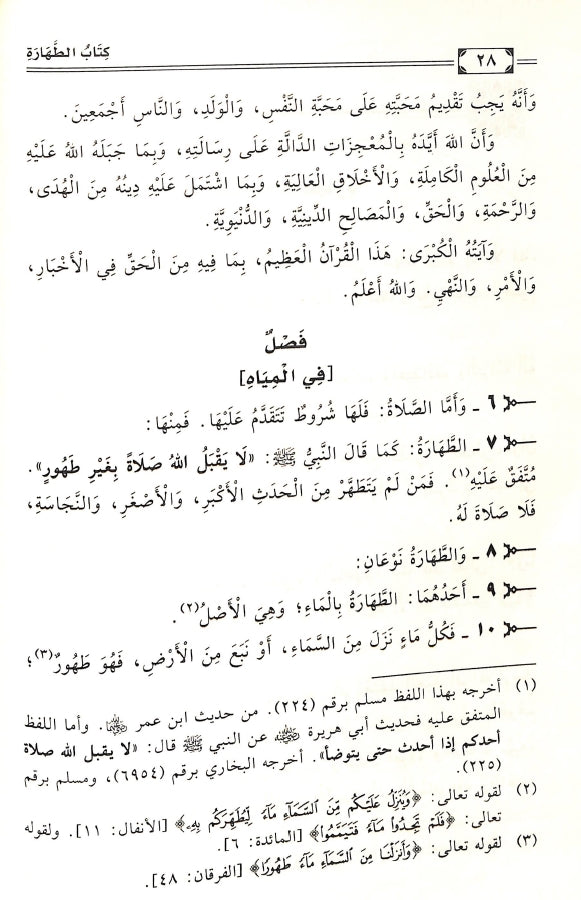 كِتَابُ الطَّهَارَةِ
٢٨
وَأَنَّهُ يَجِبُ تَقْدِيمُ مَحَبَّتِهِ عَلَى مَحَبَّةِ النَّفْسِ، وَالْوَلَدِ، وَالنَّاسِ أَجْمَعِينَ.
وَأَنَّ اللهَ أَيَّدَهُ بِالْمُعْجِزَاتِ الدَّالَّةِ عَلَى رِسَالَتِهِ، وَبِمَا جَبَلَهُ اللهُ عَلَيْهِ
مِنَ الْعُلُومِ الْكَامِلَةِ، وَالْأَخْلَاقِ الْعَالِيَةِ، وَبِمَا اشْتَمَلَ عَلَيْهِ دِينُهُ مِنَ الْهُدَى،
وَالرَّحْمَةِ، وَالْحَقِّ، وَالْمَصَالِحِ الدِّينِيَّةِ، وَالدُّنْيَوِيَّةِ.
وَآيَتُهُ الْكُبْرَى: هَذَا الْقُرْآنُ الْعَظِيمُ، بِمَا فِيهِ مِنَ الْحَقِّ فِي الْأَخْبَارِ،
وَالْأَمْرِ، وَالنَّهْيِ. وَاللهُ أَعْلَمُ.
فَصْلٌ
[فِي الْمِيَاهِ]
٦ ـ وَأَمَّا الصَّلَاةُ: فَلَهَا شُرُوطٌ تَتَقَدَّمُ عَلَيْهَا. فَمِنْهَا:
٧ ـ الطَّهَارَةُ: كَمَا قَالَ النَّبِيُّ ﷺ: «لَا يَقْبَلُ اللهُ صَلَاةً بِغَيْرِ طَهُورٍ».
مُتَّفَقٌ عَلَيْهِ(١). فَمَنْ لَمْ يَتَطَهَّرْ مِنَ الْحَدَثِ الْأَكْبَرِ، وَالْأَصْغَرِ، وَالنَّجَاسَةِ،
فَلَا صَلَاةَ لَهُ.
٨ ـ وَالطَّهَارَةُ نَوْعَانِ:
٩ ـ أَحَدُهُمَا: الطَّهَارَةُ بِالْمَاءِ؛ وَهِيَ الْأَصْلُ(٢).
١٠ ـ فَكُلُّ مَاءٍ نَزَلَ مِنَ السَّمَاءِ، أَوْ نَبَعَ مِنَ الْأَرْضِ، فَهُوَ طَهُورٌ(٣)؛
(١) أخرجه بهذا اللفظ مسلم برقم (٢٢٤). من حديث ابن عمر رضي الله عنهما. وأما اللفظ
المتفق عليه فحديث أبي هريرة رضي الله عنه عن النبي ﷺ قال: «لا يقبل الله صلاة
أحدكم إذا أحدث حتى يتوضأ». أخرجه البخاري برقم (٦٩٥٤)، ومسلم برقم
(٢٢٥).
(٢) لقوله تعالى: ﴿وَيُنَزِّلُ عَلَيْكُم مِّنَ السَّمَاءِ مَاءً لِّيُطَهِّرَكُم بِهِ﴾ [الأنفال: ١١]. ولقوله
تعالى: ﴿فَلَمْ تَجِدُوا مَاءً فَتَيَمَّمُوا﴾ [المائدة: ٦].
(٣) لقوله تعالى: ﴿وَأَنزَلْنَا مِنَ السَّمَاءِ مَاءً طَهُورًا﴾ [الفرقان: ٤٨].